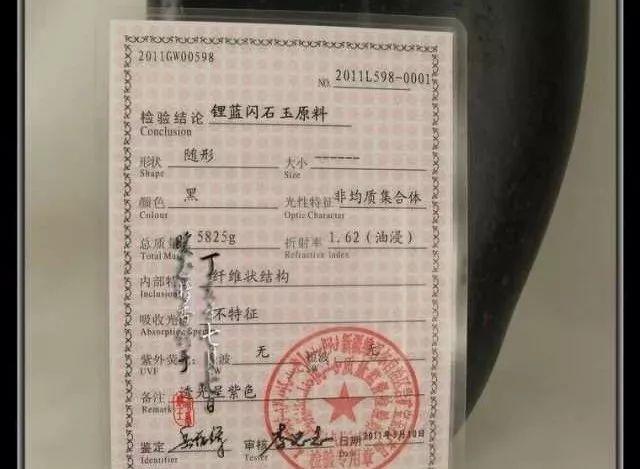 2011GW00598
NO. 2011L598-0001
检验结论 锂蓝闪石玉原料
Conclusion
形状 随形 大小 ------
Shape Size
颜色 黑 光性特征 非均质集合体
Colour Optic Character
总质量 5825g 折射率 1.62（油浸）
Total Ma Refractive index
内部特 纤维状结构
Inclusion
吸收光 不特征
Absorption Spe
紫外荧 波 无 短波 无
UVF W SW
备注 透光呈紫色
Remark
鉴定 审核 日期 2011-3-10日
Identifier Tester Date
检验专用章